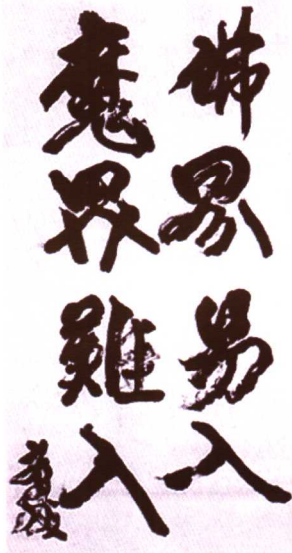 佛界易入
魔界難入